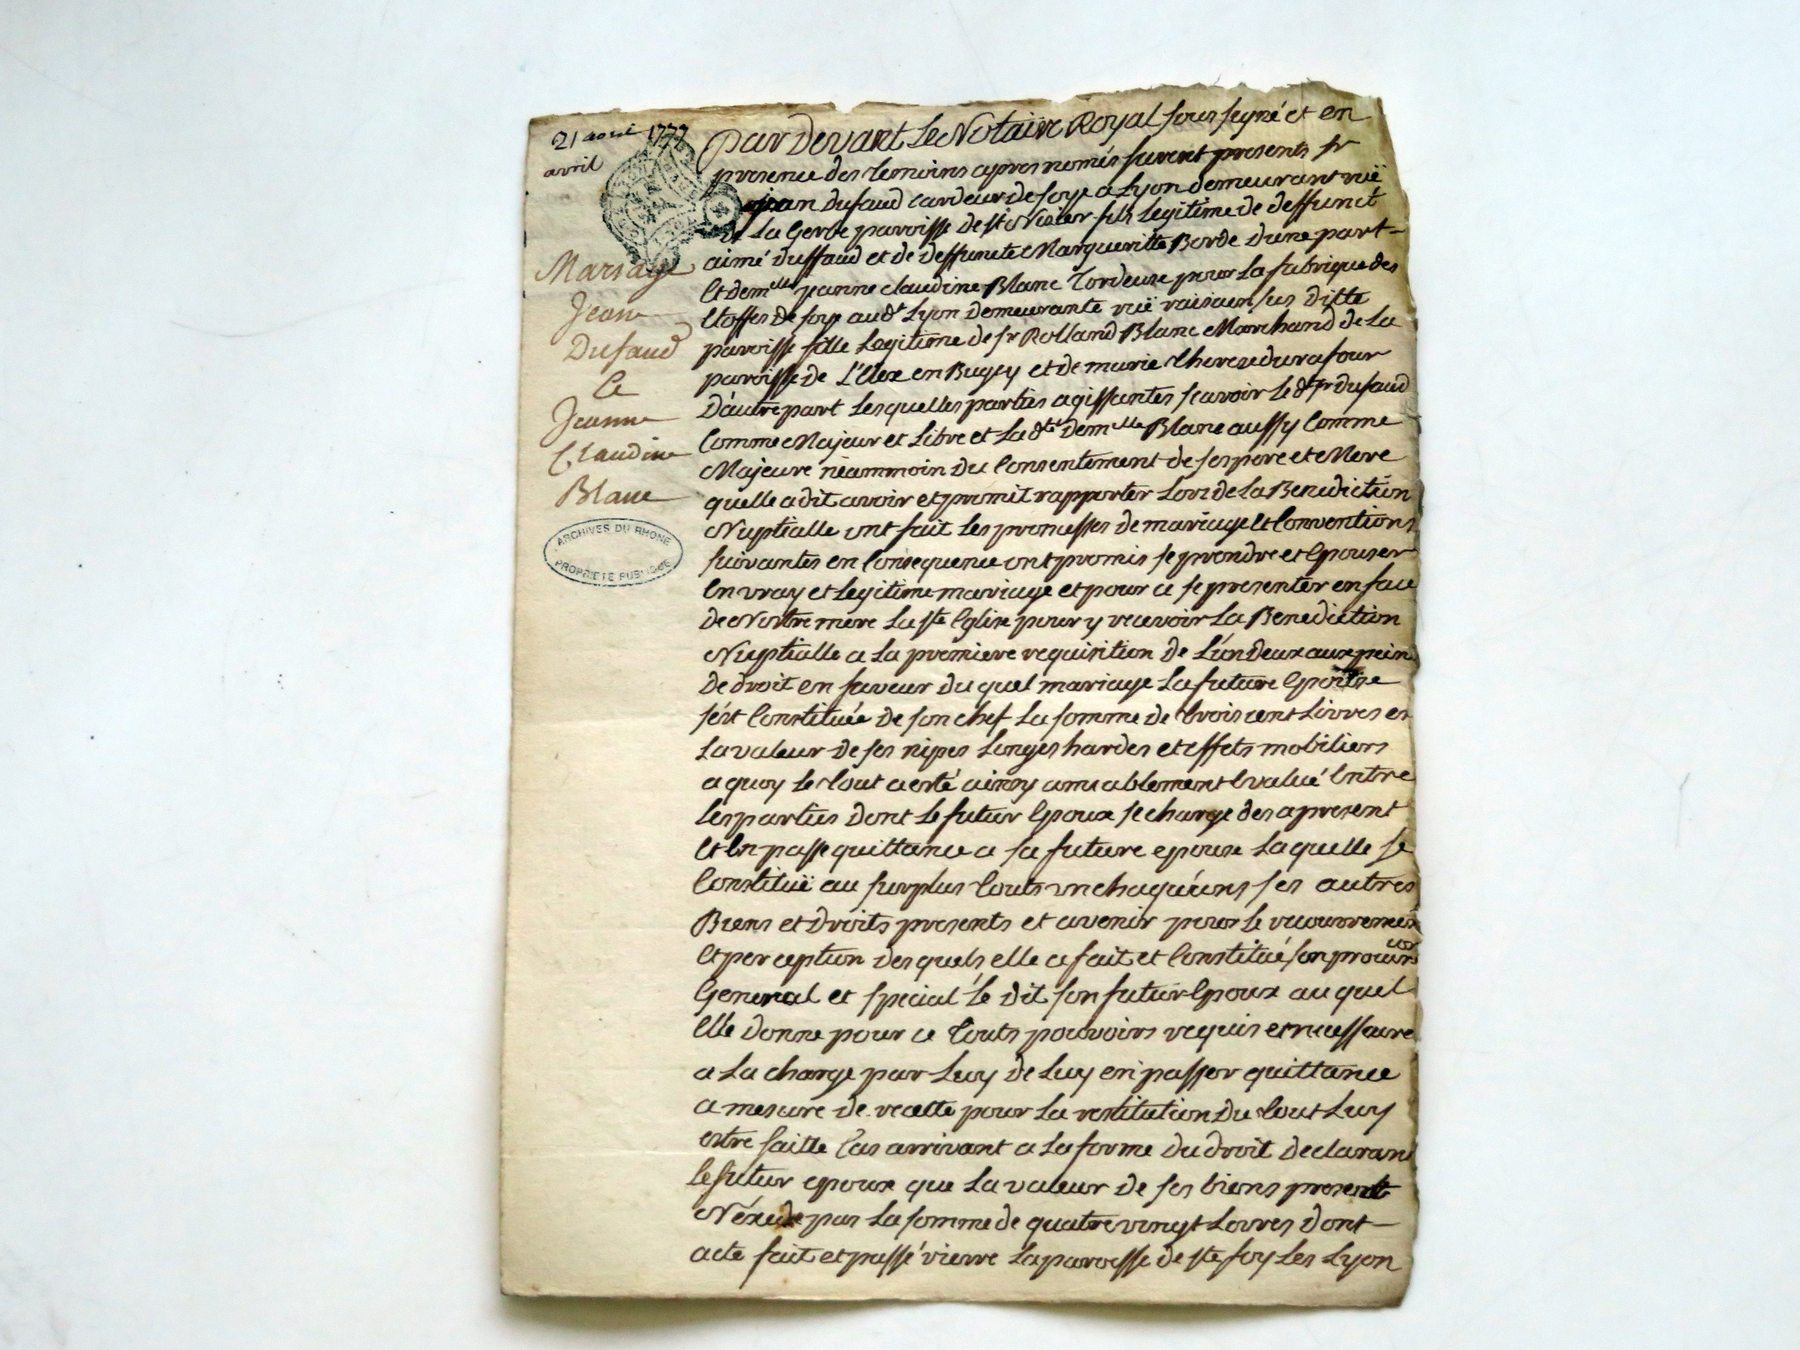 21 avril 1777
avril
Mariage
Jean
Dufaud
Et
Jeanne
Claudine
Blanc
ARCHIVES DU RHONE
PROPRIETE PUBLIQUE
Par Devant Le Notaire Royal sousigné et en
presence des temoins apres només furent presents sr
jean dufaud cardeur de soye a Lyon demeurant ruë
de La Gerbe paroisse de st Nizier fils Legitime de deffunct
aimé duffaud et de deffuncte Margueritte Borde dune part
Et demlle jeanne claudine Blanc Tordeuse pour La fabrique des
Etoffes de soye aud Lyon demeurante ruë sus ditte
paroisse fille Legitime de sr Rolland Blanc Marchand de La
paroisse de L'élex en Bugey et de marie therese durafour
D'autre part Lesquelles parties agissantes sçavoir Le dt sr dufaud
Comme Majeur et Libre et La dte Demlle Blanc aussy Comme
Majeure néammoin du Consentement de ses pere et Mere
quelle a dit avoir et promit rapporter Lors de La Benediction
Nuptialle ont fait Les promesses de mariage et Conventions
suivantes en Consequence ont promis se prendre et Epouser
En vray et Legitime mariage et pour ce se presenter en face
de Nostre mere La ste Eglise pour y recevoir La Benediction
Nuptialle a La premiere requisition de L'un deux aux peine
de droit en faveur du quel mariage La future Epouse
s'est Constituée de son chef La somme de trois cent Livres en
La valeur de ses nipes Linges hardes et effets mobiliers
a quoy Le tout a esté ainsy amiablement Evalué Entre
Les parties dont Le futur Epoux se charge des apresent
Et En passe quittance a sa future epouse La quelle se
Constituë au surplus touts un chaquéuns ses autres
Biens et Droits presents et avenir pour Le recouvrement
Et perception des quels elle a fait et Constitué son procureur
General et special Le dit son futur Epoux au quel
Elle donne pour ce touts pouvoirs requis et necessaire
a La charge par Luy de Luy en passer quittance
a mesure de recette pour La restitution du tout Luy
estre faitte Cas arrivant a La forme du droit declarant
Le futur epoux que La valeur de ses biens present
N'éxede pas La somme de quatre vingt Livres dont
acte fait et passé La paroisse de ste foy Les Lyon